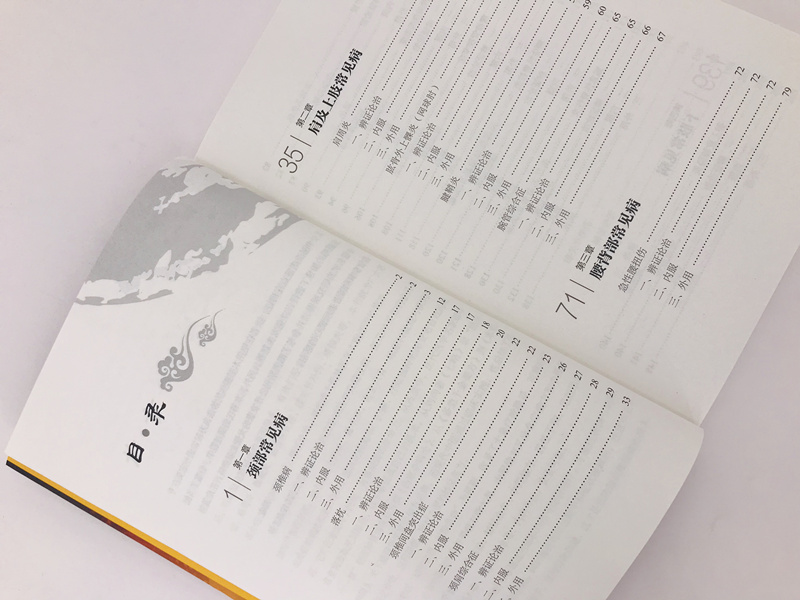 目·录
1
第一章
颈部常见病
颈椎病 2
一、辨证论治 2
二、内服 3
三、外用 12
落枕 17
一、辨证论治 17
二、内服 18
三、外用 20
颈椎间盘突出症 22
一、辨证论治 22
二、内服 23
三、外用 26
颈肩综合征 27
一、辨证论治 28
二、内服 29
三、外用 33
35
第二章
肩及上肢常见病
肩周炎
一、辨证论治
二、内服
三、外用
肱骨外上髁炎（网球肘）
一、辨证论治
二、内服
三、外用
腱鞘炎
一、辨证论治
二、内服 59
三、外用 60
腕管综合征 65
一、辨证论治 65
二、内服 66
三、外用 67
71
第三章
腰背部常见病
急性腰扭伤 72
一、辨证论治 72
二、内服 72
三、外用 79